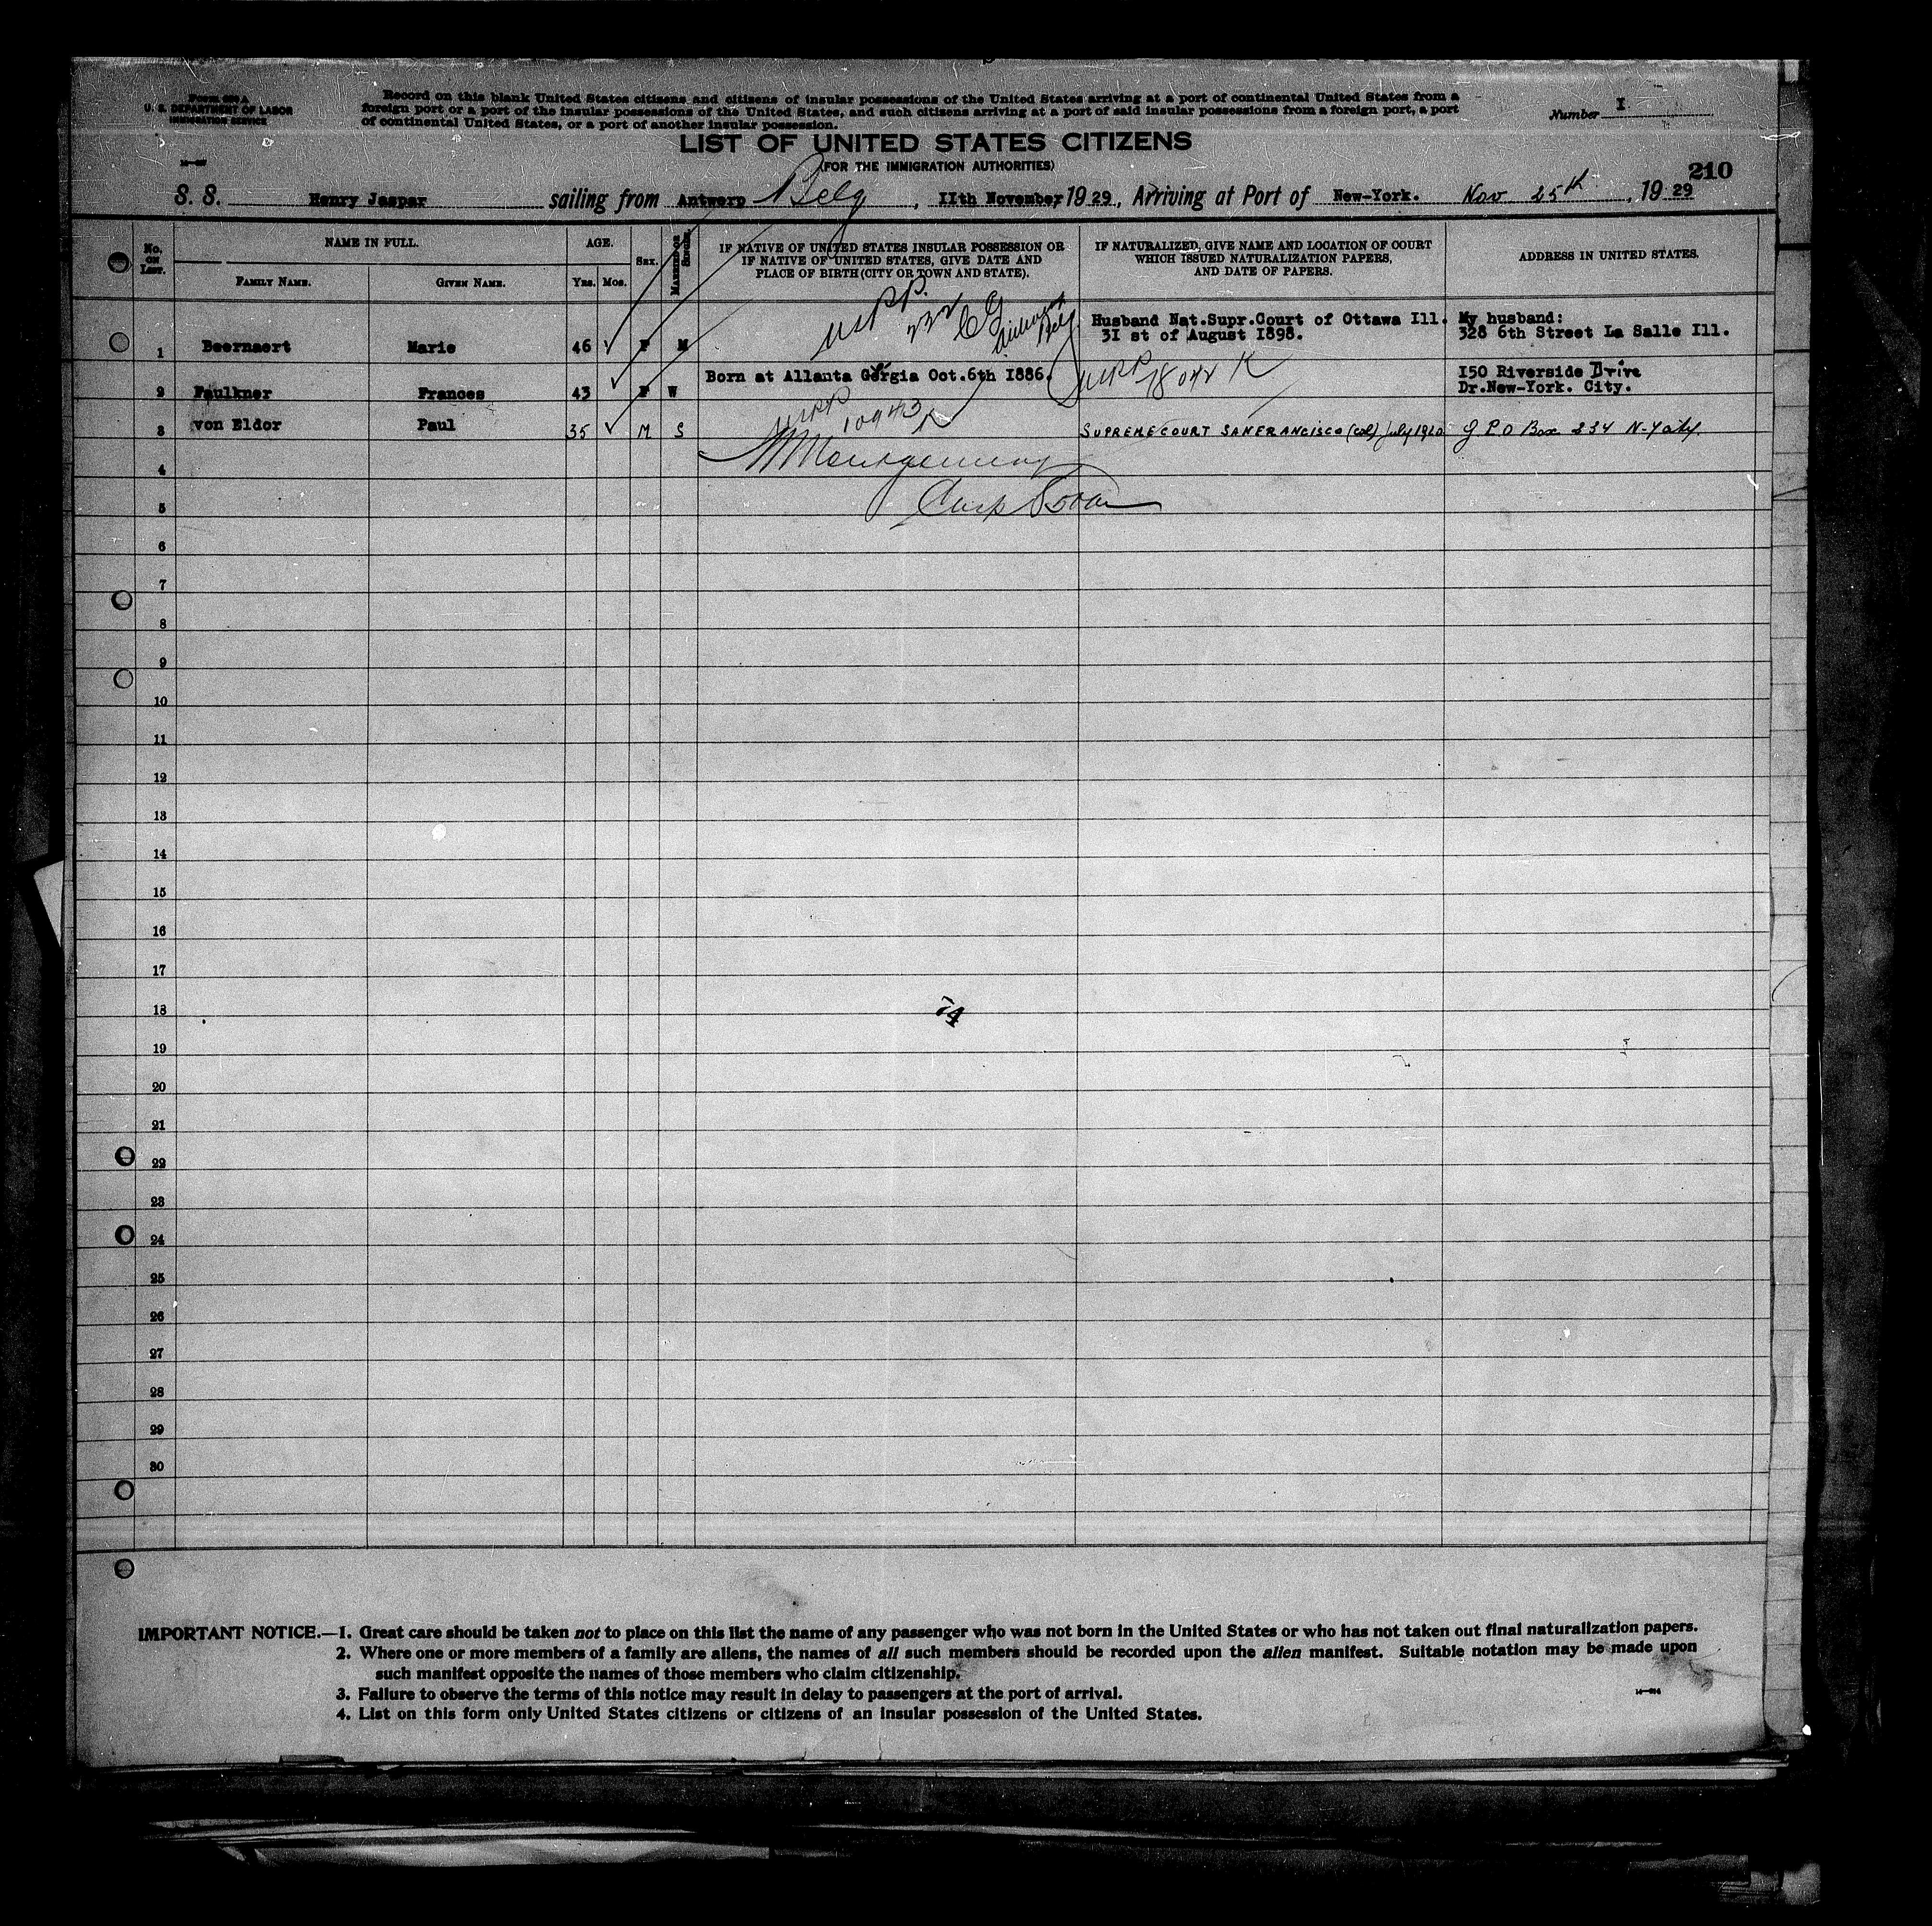 Form 630 A
U. S. DEPARTMENT OF LABOR
IMMIGRATION SERVICE
Record on this blank United States citizens and citizens of insular possessions of the United States arriving at a port of continental United States from a
foreign port or a port of the insular possessions of the United States, and such citizens arriving at a port of said insular possessions from a foreign port, a port
of continental United States, or a port of another insular possession.
Number I
LIST OF UNITED STATES CITIZENS
(FOR THE IMMIGRATION AUTHORITIES)
210
S. S. Henry Jaspar sailing from Antwerp Belg, IIth November, 1929, Arriving at Port of New-York. Nov 25th, 1929
No. ON LIST.
NAME IN FULL.
FAMILY NAME. GIVEN NAME.
AGE.
YRS. MOS.
SEX.
MARRIED OR SINGLE.
IF NATIVE OF UNITED STATES INSULAR POSSESSION OR
IF NATIVE OF UNITED STATES, GIVE DATE AND
PLACE OF BIRTH (CITY OR TOWN AND STATE).
IF NATURALIZED, GIVE NAME AND LOCATION OF COURT
WHICH ISSUED NATURALIZATION PAPERS,
AND DATE OF PAPERS.
ADDRESS IN UNITED STATES.
1 Beernaert Marie 46 F M USPP. 232 CG Belg Husband Nat.Supr.Court of Ottawa Ill. My husband:
3I st of August I898. 328 6th Street La Salle Ill.
2 Faulkner Frances 43 F W Born at Allanta Gorgia Oct.6th I886. USPP 78042 K I50 Riverside Drive
Dr.New-York. City.
3 von Eldor Paul 35 M S USPP 10943 K SUPREME COURT SANFRANCISCO (cal) july 1920 G P O Box 234 N-Y city.
4 Montgomery
5
6
7
8
9
10
11
12
13
14
15
16
17
18 74
19
20
21
22
23
24
25
26
27
28
29
30
IMPORTANT NOTICE.—1. Great care should be taken not to place on this list the name of any passenger who was not born in the United States or who has not taken out final naturalization papers.
2. Where one or more members of a family are aliens, the names of all such members should be recorded upon the alien manifest. Suitable notation may be made upon
such manifest opposite the names of those members who claim citizenship.
3. Failure to observe the terms of this notice may result in delay to passengers at the port of arrival.
4. List on this form only United States citizens or citizens of an insular possession of the United States.